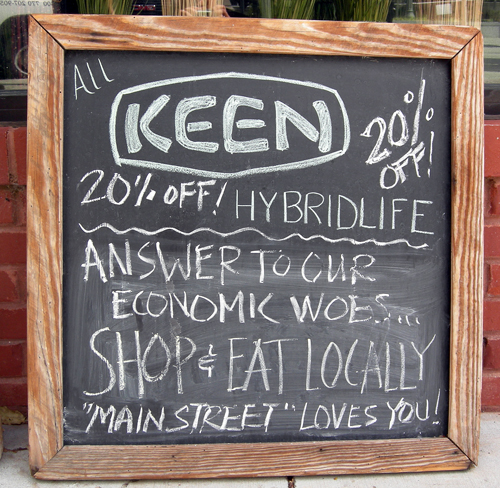 ALL
KEEN
20% OFF!
20% OFF! HYBRIDLIFE
ANSWER TO OUR
ECONOMIC WOES...
SHOP & EAT LOCALLY
"MAIN STREET" LOVES YOU!